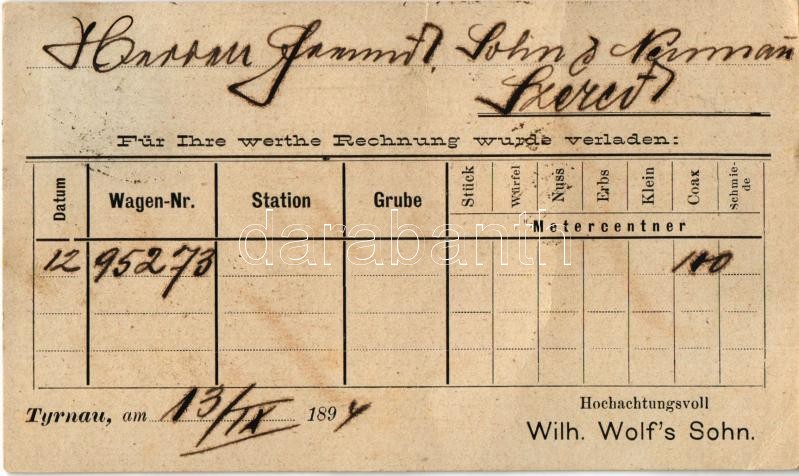 Herren Freund, Sohn & Neumann
Szered
Für Ihre werthe Rechnung wurde verladen:
Datum Wagen-Nr. Station Grube Stück Würfel Nuss Erbs Klein Coax Schmiede
Metercentner
12 95273 100
Tyrnau, am 13/IX 1894
Hochachtungsvoll
Wilh. Wolf's Sohn.
darabanth